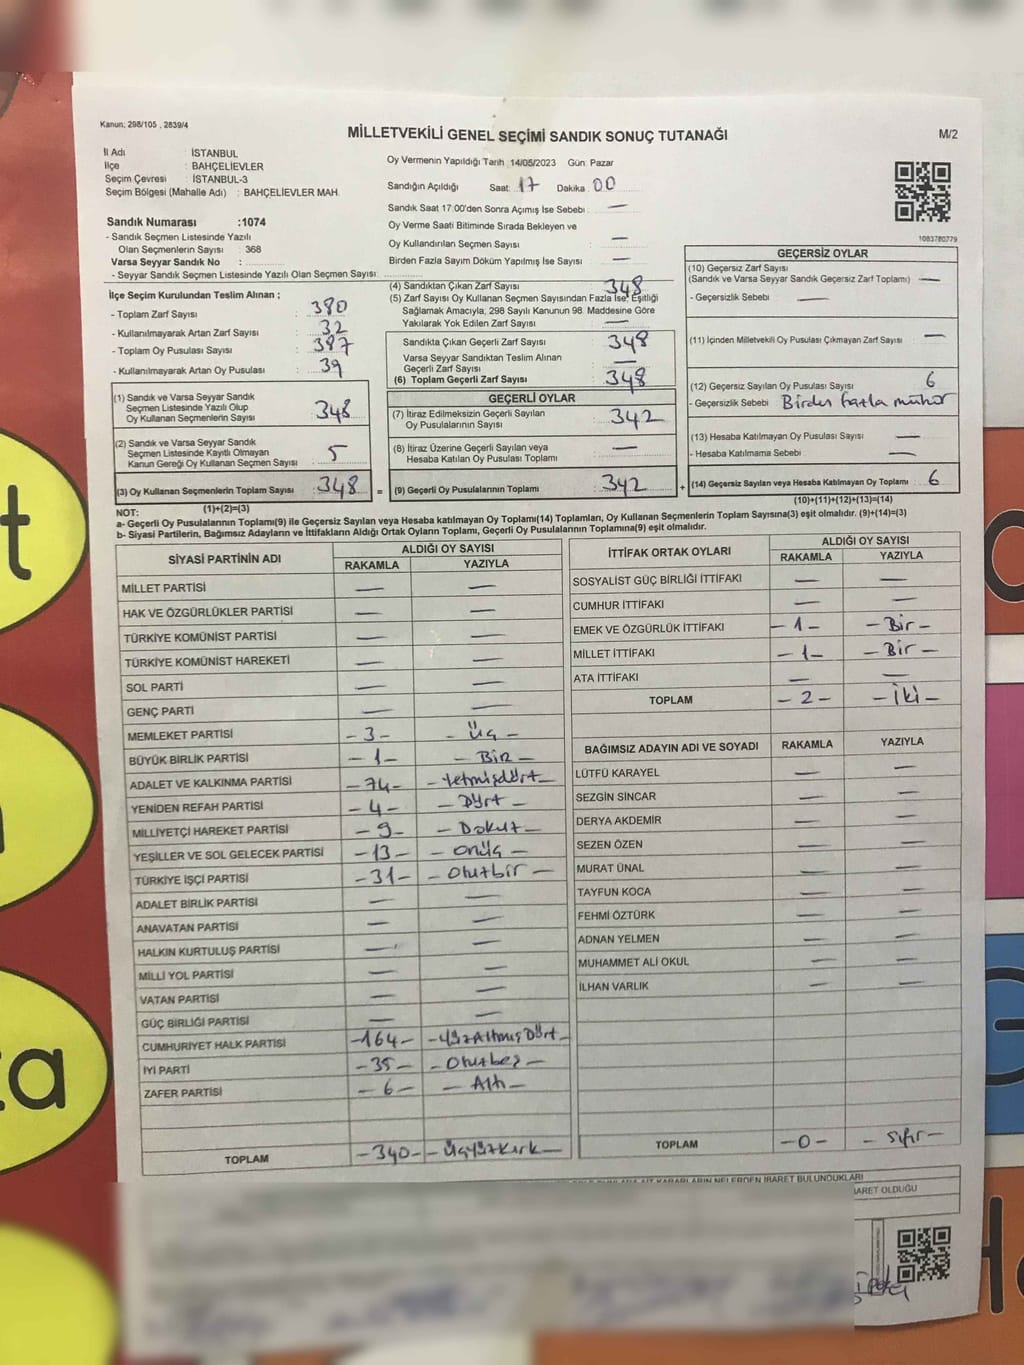 Kanun; 298/105 , 2839/4
MİLLETVEKİLİ GENEL SEÇİMİ SANDIK SONUÇ TUTANAĞI
M/2
İl Adı : İSTANBUL
İlçe : BAHÇELİEVLER
Seçim Çevresi : İSTANBUL-3
Seçim Bölgesi (Mahalle Adı) : BAHÇELİEVLER MAH.
Sandık Numarası :1074
- Sandık Seçmen Listesinde Yazılı
Olan Seçmenlerin Sayısı : 368
Varsa Seyyar Sandık No :
- Seyyar Sandık Seçmen Listesinde Yazılı Olan Seçmen Sayısı:
Oy Vermenin Yapıldığı Tarih :14/05/2023 Gün: Pazar
Sandığın Açıldığı Saat: 17 Dakika 00
Sandık Saat 17:00'den Sonra Açımış İse Sebebi : —
Oy Verme Saati Bitiminde Sırada Bekleyen ve
Oy Kullandırılan Seçmen Sayısı : —
Birden Fazla Sayım Döküm Yapılmış İse Sayısı : —
1083780779
İlçe Seçim Kurulundan Teslim Alınan ;
- Toplam Zarf Sayısı : 380
- Kullanılmayarak Artan Zarf Sayısı : 32
- Toplam Oy Pusulası Sayısı : 387
- Kullanılmayarak Artan Oy Pusulası : 39
(1) Sandık ve Varsa Seyyar Sandık
Seçmen Listesinde Yazılı Olup
Oy Kullanan Seçmenlerin Sayısı : 348
(2) Sandık ve Varsa Seyyar Sandık
Seçmen Listesinde Kayıtlı Olmayan
Kanun Gereği Oy Kullanan Seçmen Sayısı : 5
(3) Oy Kullanan Seçmenlerin Toplam Sayısı : 348
(1)+(2)=(3)
(4) Sandıktan Çıkan Zarf Sayısı : 348
(5) Zarf Sayısı Oy Kullanan Seçmen Sayısından Fazla İse; Eşitliği
Sağlamak Amacıyla; 298 Sayılı Kanunun 98. Maddesine Göre
Yakılarak Yok Edilen Zarf Sayısı : —
Sandıkta Çıkan Geçerli Zarf Sayısı : 348
Varsa Seyyar Sandıktan Teslim Alınan
Geçerli Zarf Sayısı : —
(6) Toplam Geçerli Zarf Sayısı : 348
GEÇERLİ OYLAR
(7) İtiraz Edilmeksizin Geçerli Sayılan
Oy Pusulalarının Sayısı : 342
(8) İtiraz Üzerine Geçerli Sayılan veya
Hesaba Katılan Oy Pusulası Toplamı : —
= (9) Geçerli Oy Pusulalarının Toplamı : 342
GEÇERSİZ OYLAR
(10) Geçersiz Zarf Sayısı
(Sandık ve Varsa Seyyar Sandık Geçersiz Zarf Toplamı) : —
- Geçersizlik Sebebi : —
(11) İçinden Milletvekili Oy Pusulası Çıkmayan Zarf Sayısı : —
(12) Geçersiz Sayılan Oy Pusulası Sayısı : 6
- Geçersizlik Sebebi : Birden fazla mühür
(13) Hesaba Katılmayan Oy Pusulası Sayısı : —
- Hesaba Katılmama Sebebi : —
+ (14) Geçersiz Sayılan veya Hesaba Katılmayan Oy Toplamı : 6
(10)+(11)+(12)+(13)=(14)
NOT:
a- Geçerli Oy Pusulalarının Toplamı(9) ile Geçersiz Sayılan veya Hesaba katılmayan Oy Toplamı(14) Toplamları, Oy Kullanan Seçmenlerin Toplam Sayısına(3) eşit olmalıdır. (9)+(14)=(3)
b- Siyasi Partilerin, Bağımsız Adayların ve İttifakların Aldığı Ortak Oyların Toplamı, Geçerli Oy Pusulalarının Toplamına(9) eşit olmalıdır.
SİYASİ PARTİNİN ADI ALDIĞI OY SAYISI
RAKAMLA YAZIYLA
MİLLET PARTİSİ — —
HAK VE ÖZGÜRLÜKLER PARTİSİ — —
TÜRKİYE KOMÜNİST PARTİSİ — —
TÜRKİYE KOMÜNİST HAREKETİ — —
SOL PARTİ — —
GENÇ PARTİ — —
MEMLEKET PARTİSİ -3- - Üç -
BÜYÜK BİRLİK PARTİSİ -1- - Bir -
ADALET VE KALKINMA PARTİSİ -74- - Yetmişdört -
YENİDEN REFAH PARTİSİ -4- - Dört -
MİLLİYETÇİ HAREKET PARTİSİ -9- - Dokuz -
YEŞİLLER VE SOL GELECEK PARTİSİ -13- - onüç -
TÜRKİYE İŞÇİ PARTİSİ -31- - Otuzbir -
ADALET BİRLİK PARTİSİ — —
ANAVATAN PARTİSİ — —
HALKIN KURTULUŞ PARTİSİ — —
MİLLİ YOL PARTİSİ — —
VATAN PARTİSİ — —
GÜÇ BİRLİĞİ PARTİSİ — —
CUMHURİYET HALK PARTİSİ -164- - YüzAltmışDört -
İYİ PARTİ -35- - Otuzbeş -
ZAFER PARTİSİ -6- - Altı -
TOPLAM -340- - Üçyüzkırk -
İTTİFAK ORTAK OYLARI ALDIĞI OY SAYISI
RAKAMLA YAZIYLA
SOSYALİST GÜÇ BİRLİĞİ İTTİFAKI — —
CUMHUR İTTİFAKI — —
EMEK VE ÖZGÜRLÜK İTTİFAKI -1- - Bir -
MİLLET İTTİFAKI -1- - Bir -
ATA İTTİFAKI — —
TOPLAM -2- - İki -
BAĞIMSIZ ADAYIN ADI VE SOYADI RAKAMLA YAZIYLA
LÜTFÜ KARAYEL — —
SEZGİN SİNCAR — —
DERYA AKDEMİR — —
SEZEN ÖZEN — —
MURAT ÜNAL — —
TAYFUN KOCA — —
FEHMİ ÖZTÜRK — —
ADNAN YELMEN — —
MUHAMMET ALİ OKUL — —
İLHAN VARLIK — —
TOPLAM -0- - sıfır -
KARARLARIN NELERDEN İBARET BULUNDUKLARI
İBARET OLDUĞU